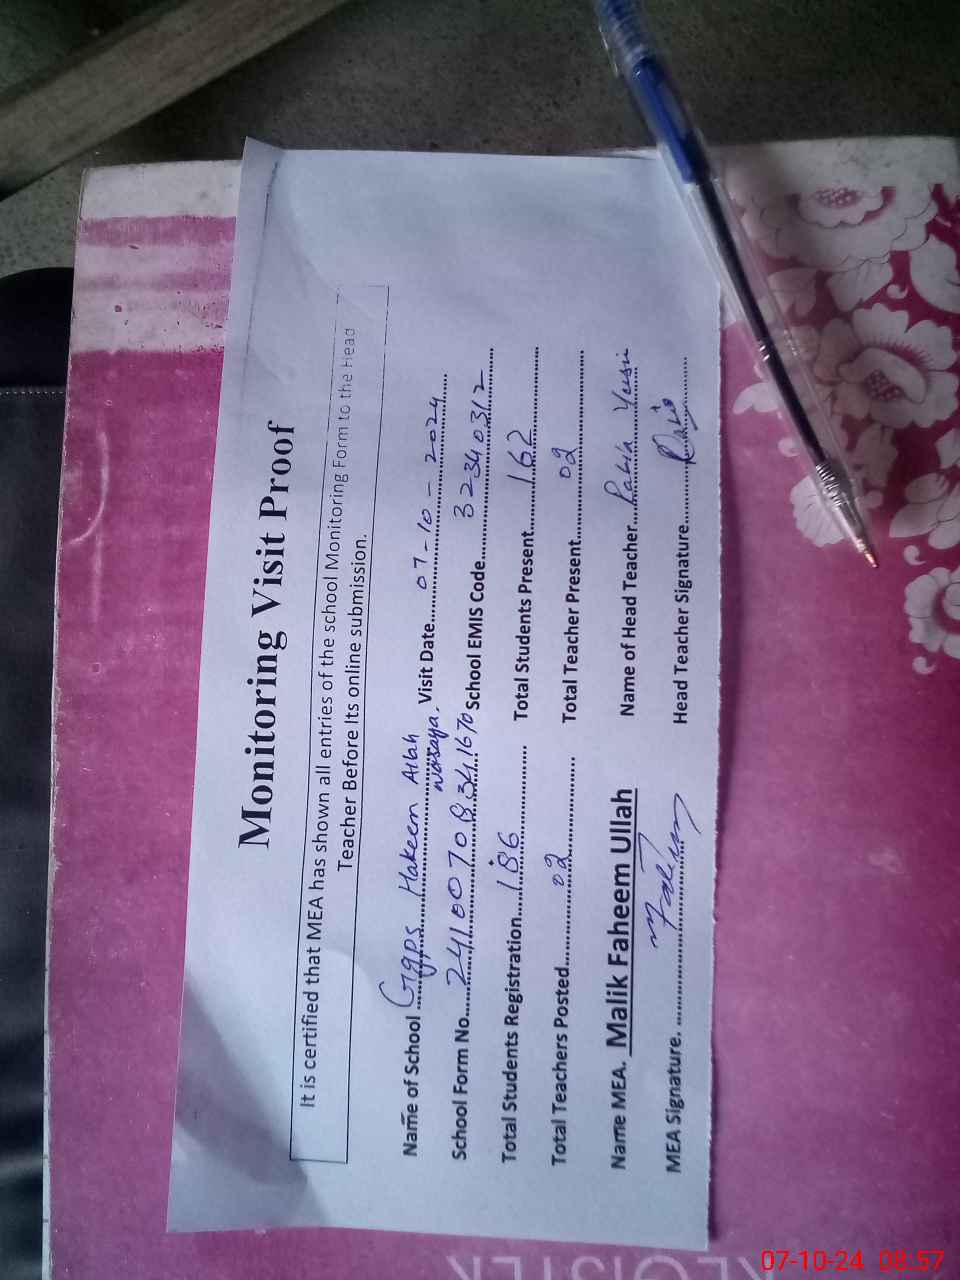 Monitoring Visit Proof
It is certified that MEA has shown all entries of the school Monitoring Form to the Head
Teacher Before Its online submission.
Name of School Ggps Hakeem Allah Wasaya. Visit Date 07-10-2024
School Form No. 24100708341670 School EMIS Code 32340312
Total Students Registration 186 Total Students Present 162
Total Teachers Posted 02 Total Teacher Present 02
Name MEA. Malik Faheem Ullah Name of Head Teacher Rabia
MEA Signature. Head Teacher Signature
REGISTER
07-10-24 08:57